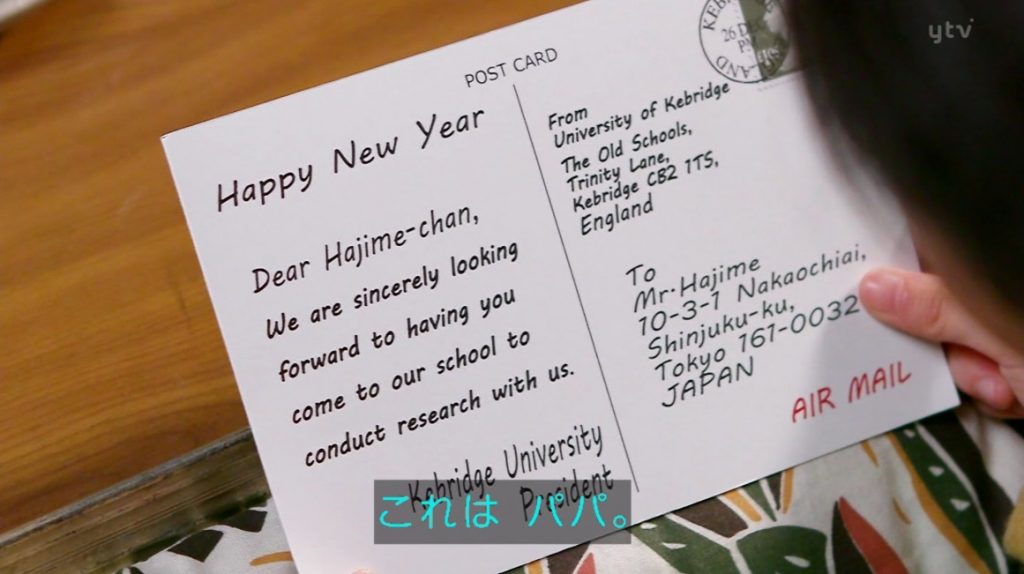 ytv
POST CARD
Happy New Year
Dear Hajime-chan,
We are sincerely looking
forward to having you
come to our school to
conduct research with us.
Kebridge University
President
From
University of Kebridge
The Old Schools,
Trinity Lane,
Kebridge CB2 1TS,
England
To
Mr.Hajime
10-3-1 Nakaochiai,
Shinjuku-ku,
Tokyo 161-0032
JAPAN
AIR MAIL
これは パパ。